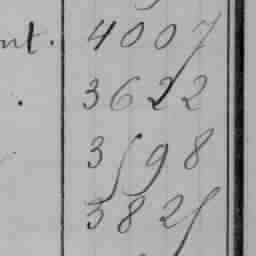 nt. 4007
. 3622
3598
3825